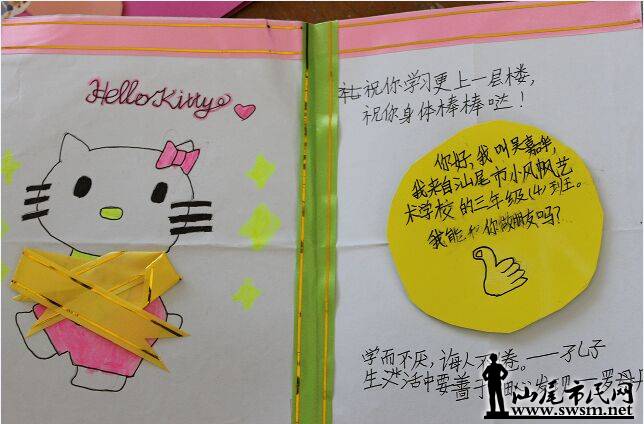 Hello Kitty
祝你学习更上一层楼,
祝你身体棒棒哒!
你好,我叫吴嘉华,
我来自汕尾市小风帆艺
术学校的三年级(4)班。
我能和你做朋友吗?
学而不厌,诲人不卷。——孔子
生活中要善于
汕尾市民网
www.swsm.net